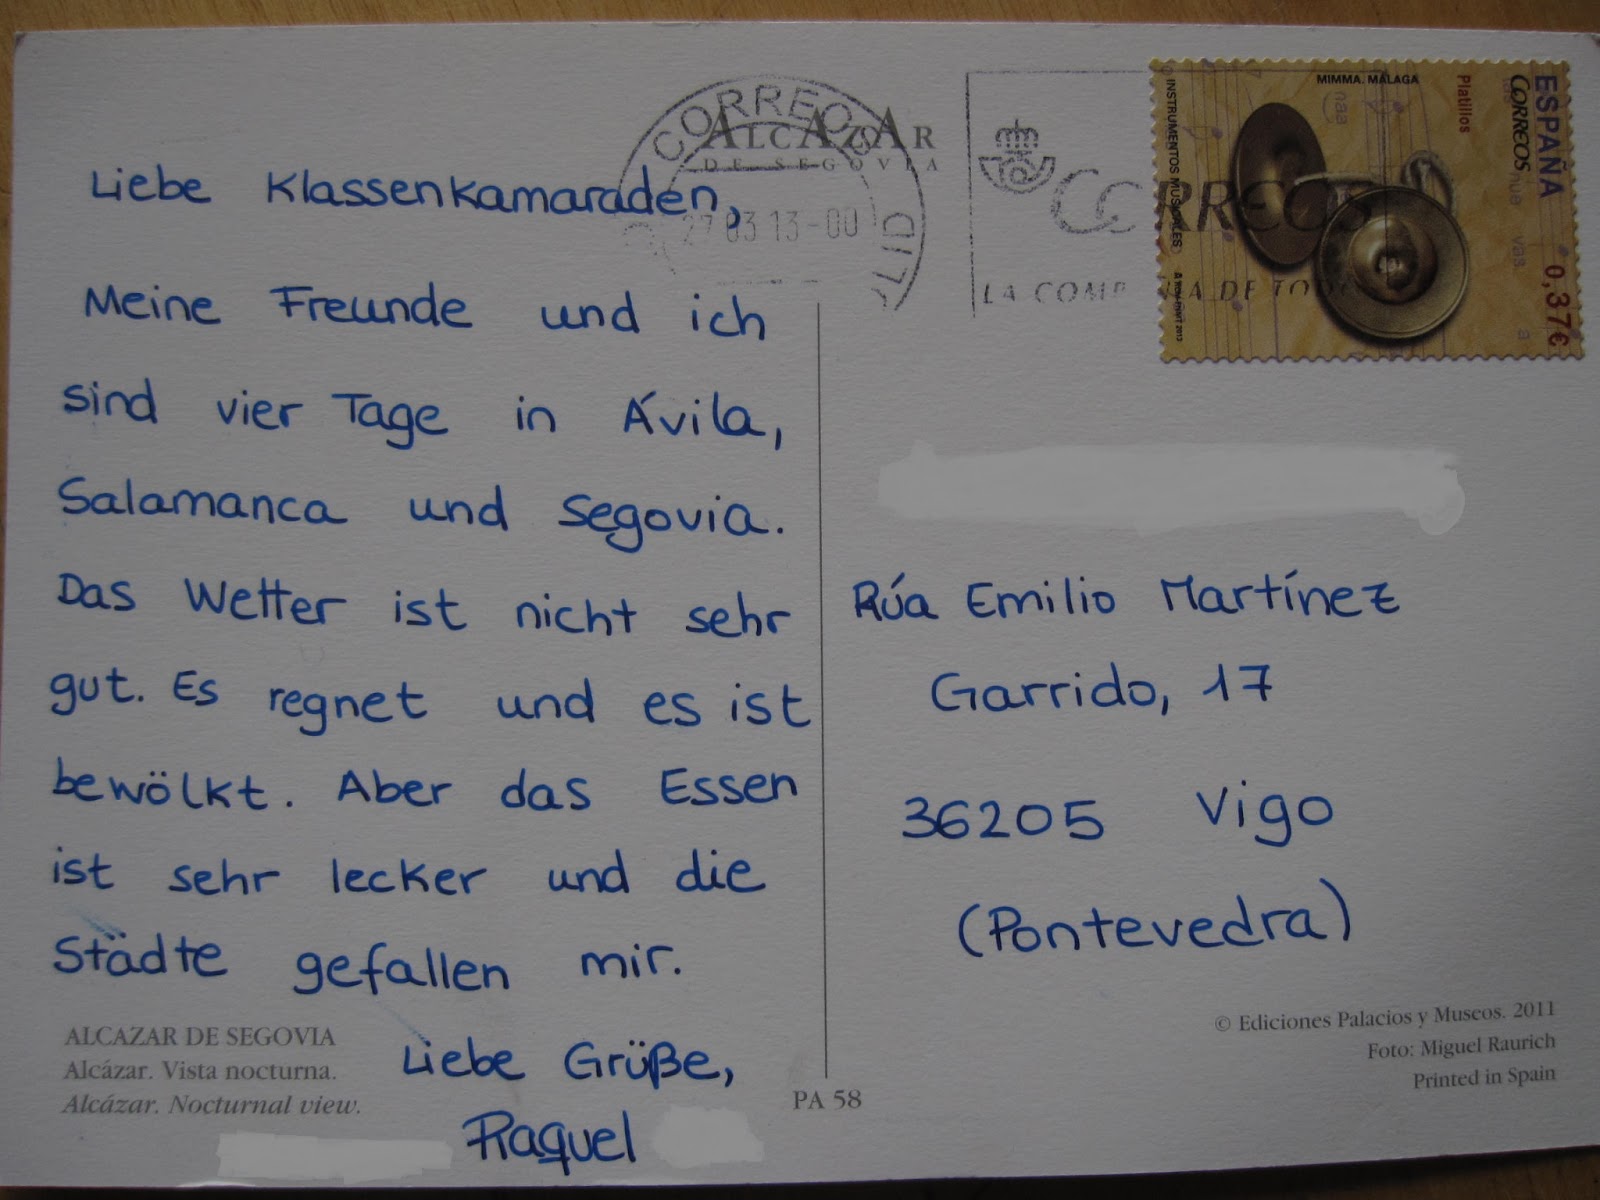 ALCAZAR
DE SEGOVIA
CORREOS
27 03 13-00
LID
CORREOS
LA COMP
A DE TOD
MIMMA. MÁLAGA
Platillos
ESPAÑA
CORREOS
0,37€
INSTRUMENTOS MUSICALES
2013
Liebe Klassenkamaraden,
Meine Freunde und ich
sind vier Tage in Ávila,
Salamanca und Segovia.
Das Wetter ist nicht sehr
gut. Es regnet und es ist
bewölkt. Aber das Essen
ist sehr lecker und die
Städte gefallen mir.
Liebe Grüße,
Raquel
Rúa Emilio Martínez
Garrido, 17
36205 Vigo
(Pontevedra)
ALCAZAR DE SEGOVIA
Alcázar. Vista nocturna.
Alcázar. Nocturnal view.
PA 58
© Ediciones Palacios y Museos. 2011
Foto: Miguel Raurich
Printed in Spain